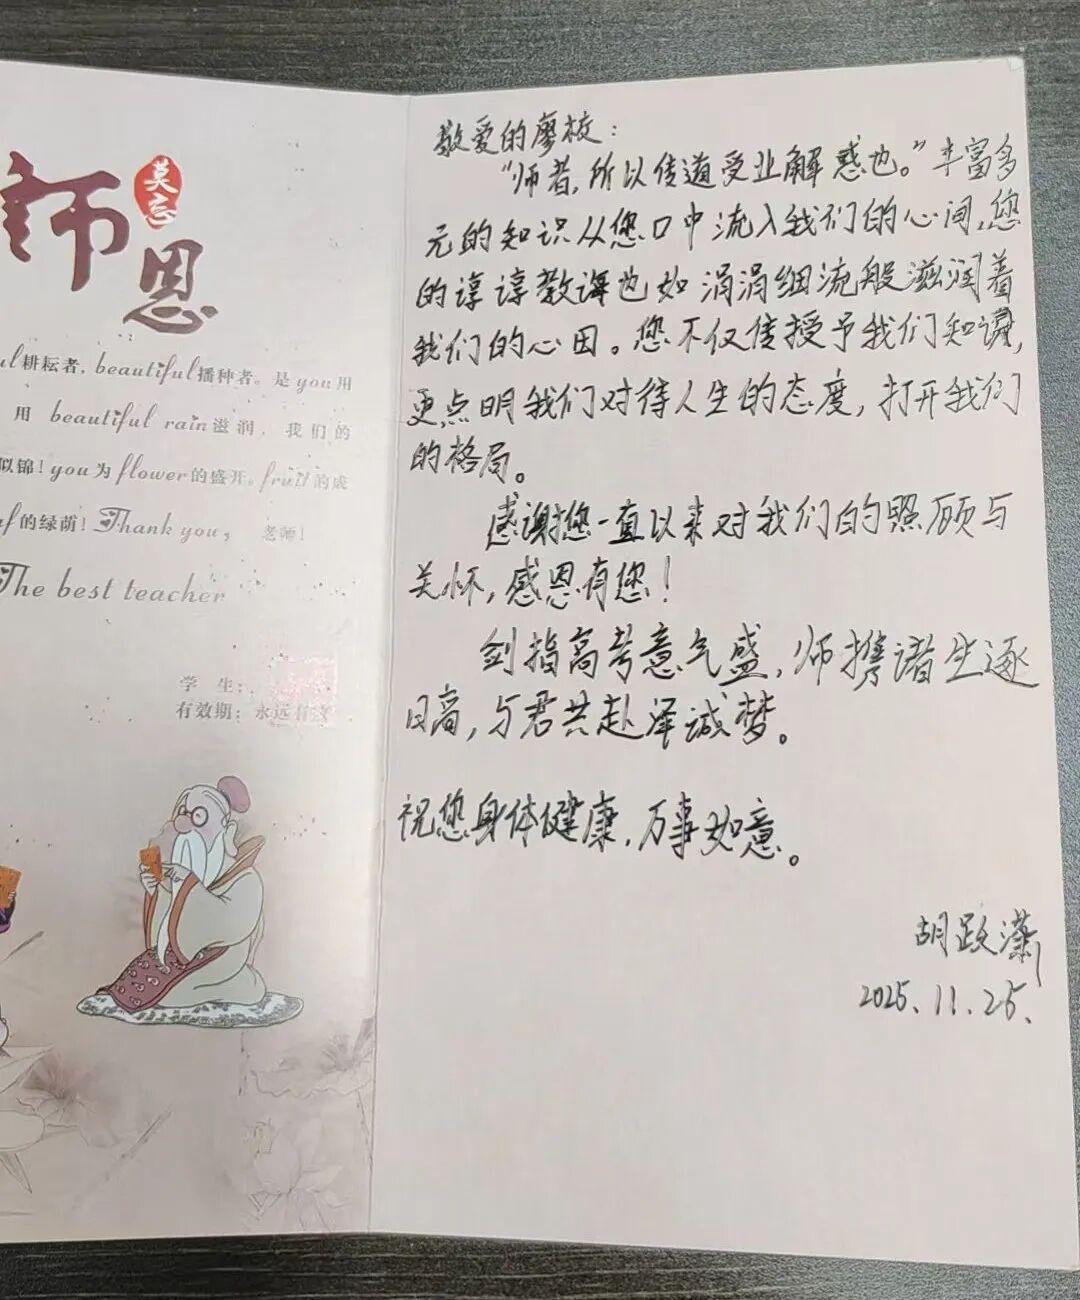 师恩
莫忘
耕耘者，beautiful播种者。是you用
用 beautiful rain滋润，我们的
似锦！you为flower的盛开。fruit的成
的绿荫！Thank you，老师！
The best teacher
学 生：
有效期：永远有效
敬爱的廖校：
“师者，所以传道受业解惑也。”丰富多
元的知识从您口中流入我们的心间，您
的谆谆教诲也如涓涓细流般滋润着
我们的心田。您不仅传授予我们知识，
更点明我们对待人生的态度，打开我们
的格局。
感谢您一直以来对我们的照顾与
关怀，感恩有您！
剑指高考意气盛，师携诸生逐
日高，与君共赴泽诚梦。
祝您身体健康，万事如意。
胡跃潇
2025.11.25.